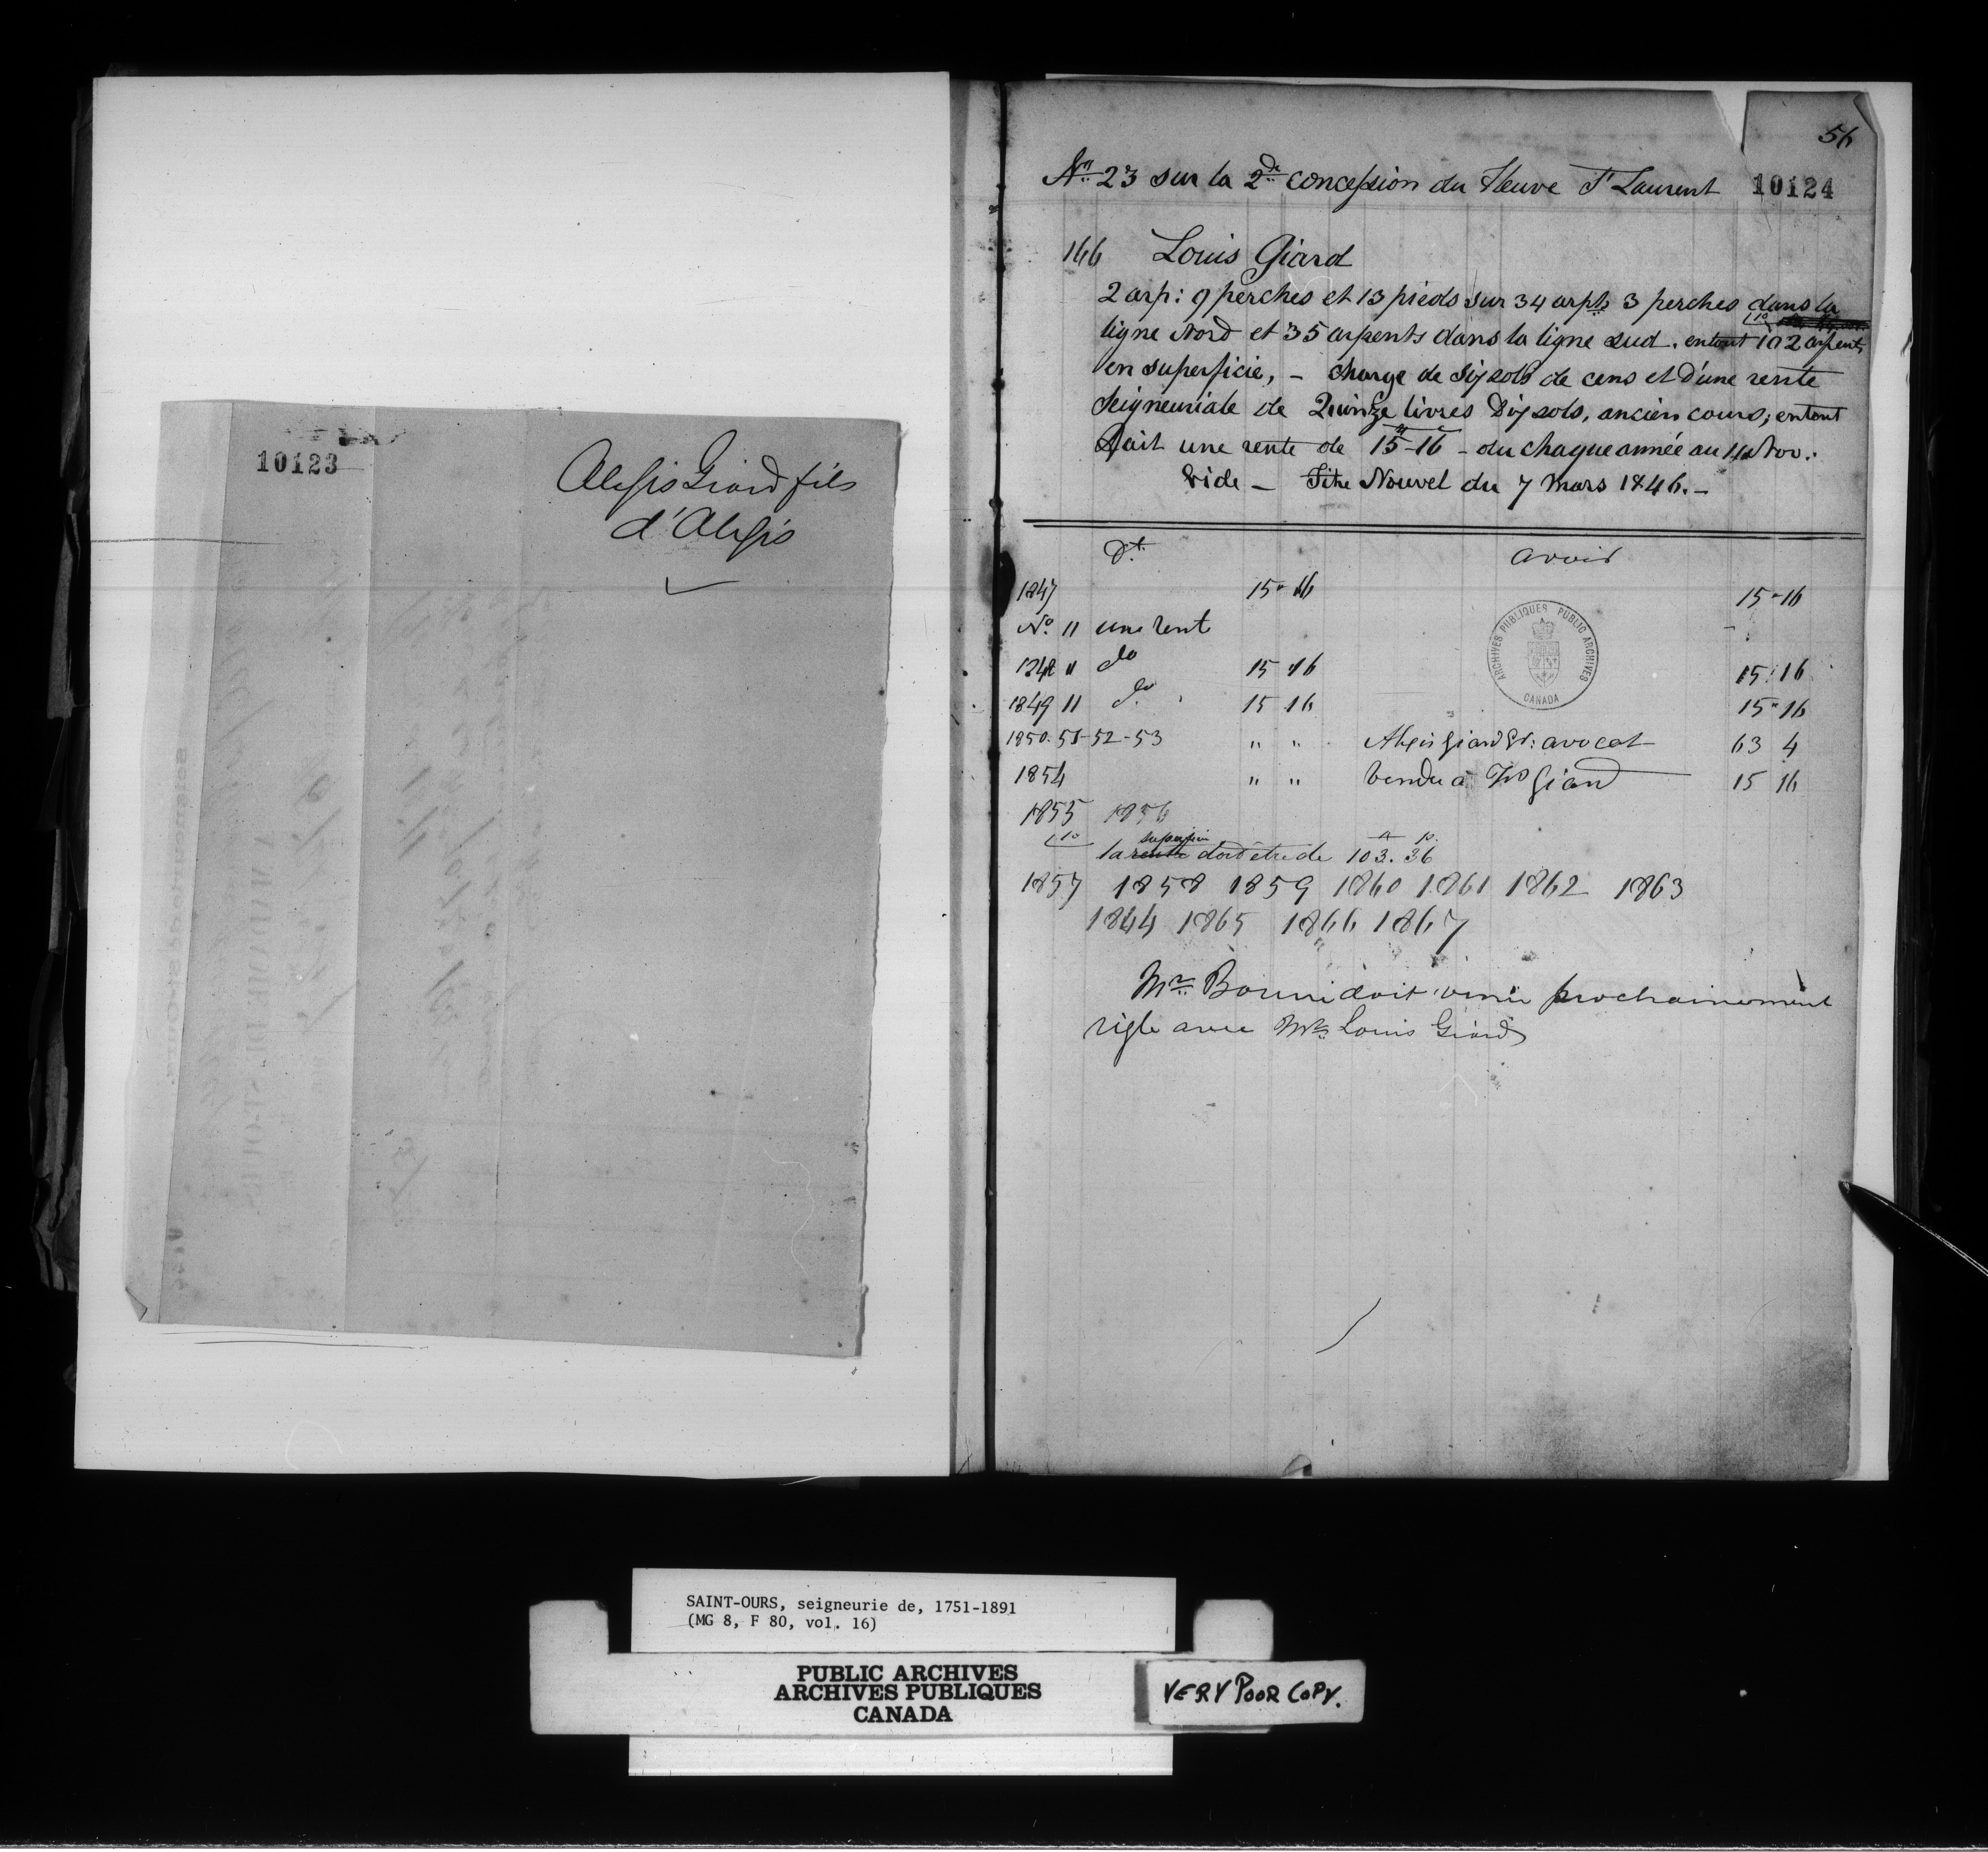 10123
Alexis Giard fils
d'Alexis
56
No. 23 sur la 2de concession du Fleuve St Laurent 10124
146 Louis Giard
2 arp: 9 perches et 13 pieds sur 34 arpts 3 perches dans la
ligne Nord et 35 arpents dans la ligne sud. en tout 102 arpents
(1o
en superficie, - charge de Six sols de cens et d'une rente
Seigneuriale de Quinze livres Dix sols, ancien cours; en tout
Fait une rente de 15-16 - du chaque année au 11 Nov.
Vide - Titre Nouvel du 7 Mars 1846.-
Dt. avoir
1847 15 " 16 15 - 16
No. 11 une rent
1848 11 do 15 16 15 : 16
1849 11 do. 15 16 15 " 16
1850-51-52-53 " " Alexis Giard Sr: avocat 63 4
1854 " " Vendu à Giard 15 16
1855 1856
(1o superficie
la rente doit être de 103. 36
A P.
1857 1858 1859 1860 1861 1862 1863
1844 1865 1866 1867
Mr. doit venir prochainement
règle avec Mr. Louis Giard
ARCHIVES PUBLIQUES PUBLIC ARCHIVES
CANADA
SAINT-OURS, seigneurie de, 1751-1891
(MG 8, F 80, vol. 16)
PUBLIC ARCHIVES
ARCHIVES PUBLIQUES
CANADA
VERY POOR COPY.